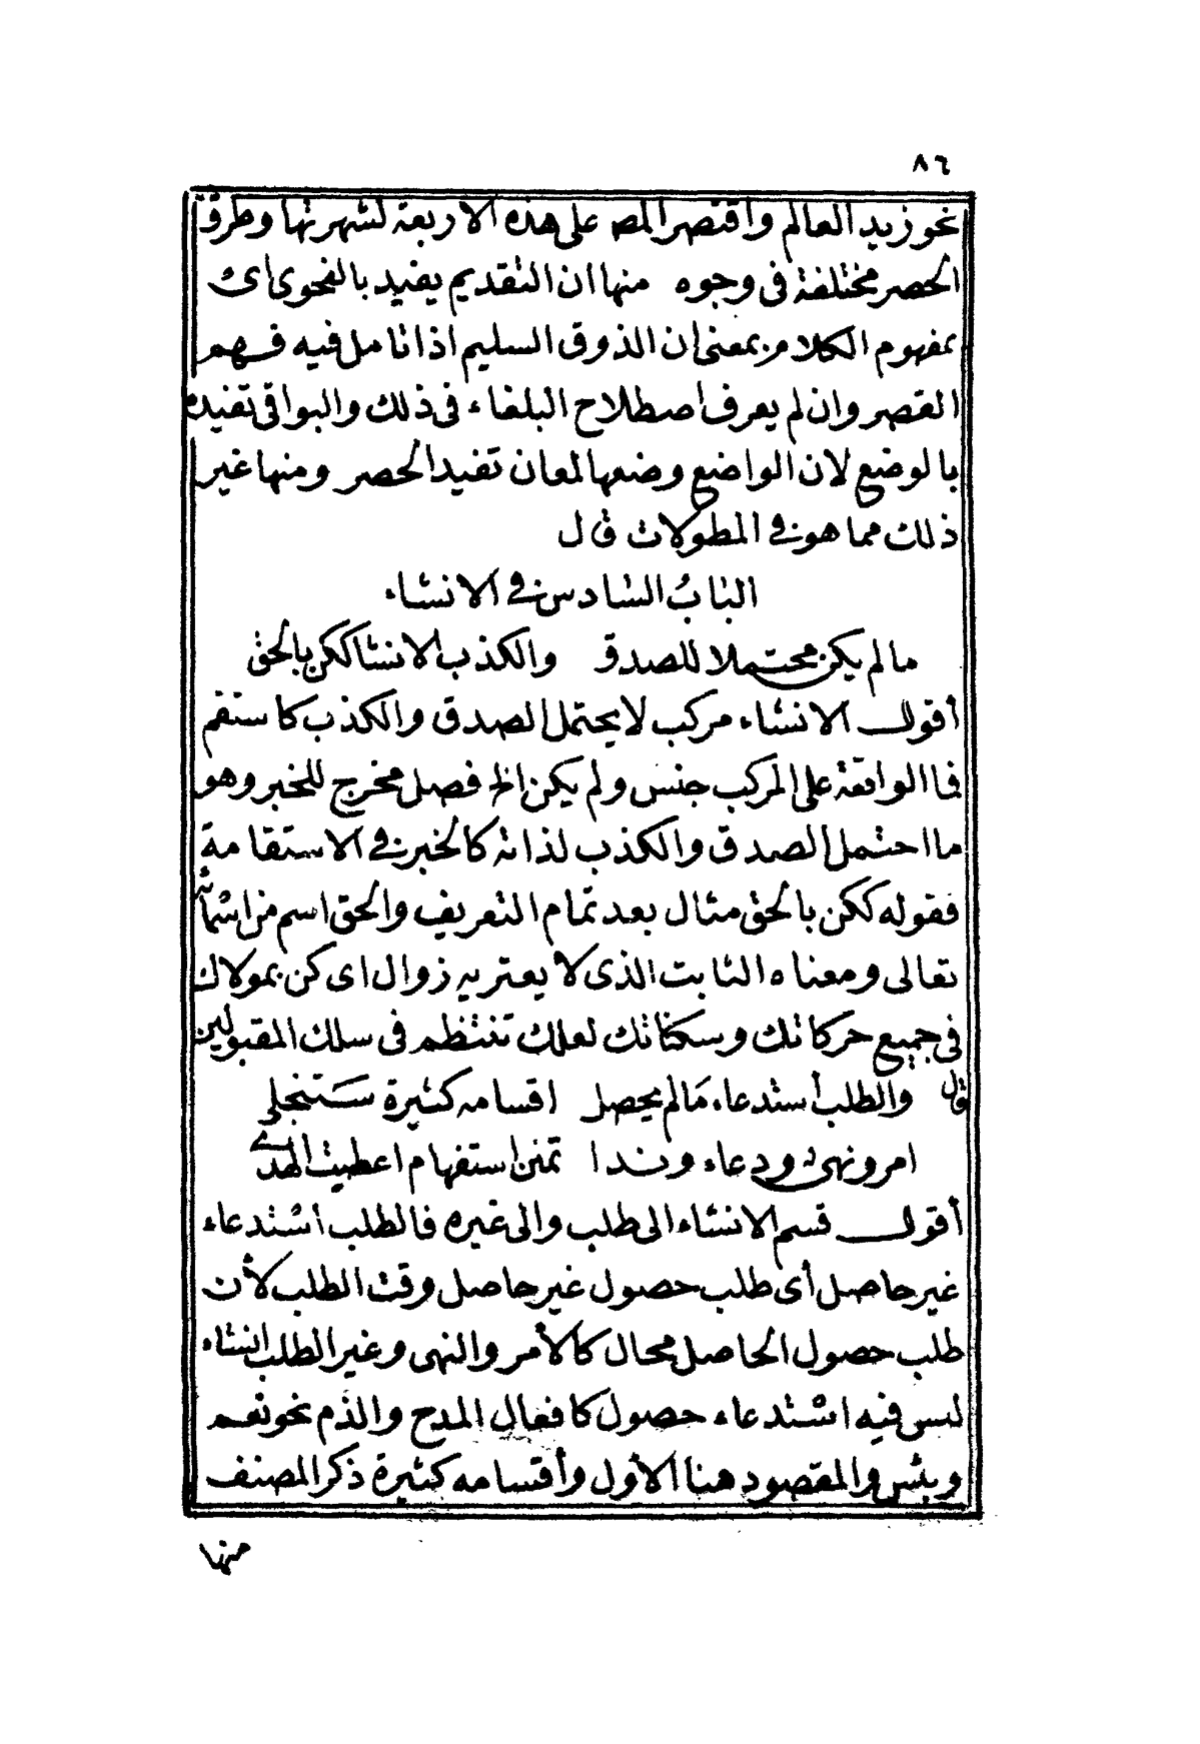 ٨٦
نحو زيد العالم واقتصر المص على هذه الاربعة لشهرتها وطرق
الحصر مختلفة فى وجوه منها ان التقديم يفيد بالفحوى اى
بمفهوم الكلام بمعنى ان الذوق السليم اذا تامل فيه فهم
القصر وان لم يعرف اصطلاح البلغاء فى ذلك والبواقى تفيده
بالوضع لان الواضع وضعها لمعان تفيد الحصر ومنها غير
ذلك مما هو فى المطولات قال
الباب السادس فى الانشاء
مالم يكن محتملا للصدق والكذب الانشا ككن بالحق
أقول الانشاء مركب لا يحتمل الصدق والكذب كاستقم
فما الواقعة على المركب جنس ولم يكن الخ فصل مخرج للخبر وهو
ما احتمل الصدق والكذب لذاته كالخبر فى الاستقامة
فقوله ككن بالحق مثال بعد تمام التعريف والحق اسم من اسمائه
تعالى ومعناه الثابت الذى لا يعتريه زوال اى كن بمولاك
فى جميع حركاتك وسكناتك لعلك تنتظم فى سلك المقبولين
قال والطلب أستدعاء مالم يحصل اقسامه كثيرة ستنجلى
امر ونهى ودعاء وندا تمن استفهام اعطيت الهدى
أقول قسم الانشاء الى طلب والى غيره فالطلب أستدعاء
غير حاصل أى طلب حصول غير حاصل وقت الطلب لأن
طلب حصول الحاصل محال كالأمر والنهى وغير الطلب انشاء
ليس فيه استدعاء حصول كافعال المدح والذم نحو نعم
وبئس والمقصود هنا الأول وأقسامه كثيرة ذكر المصنف
منها